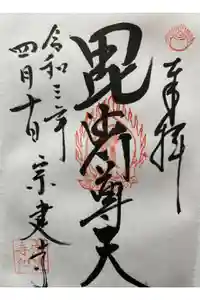 奉拝
毘沙門尊天
令和三年
四月十日
宗建寺